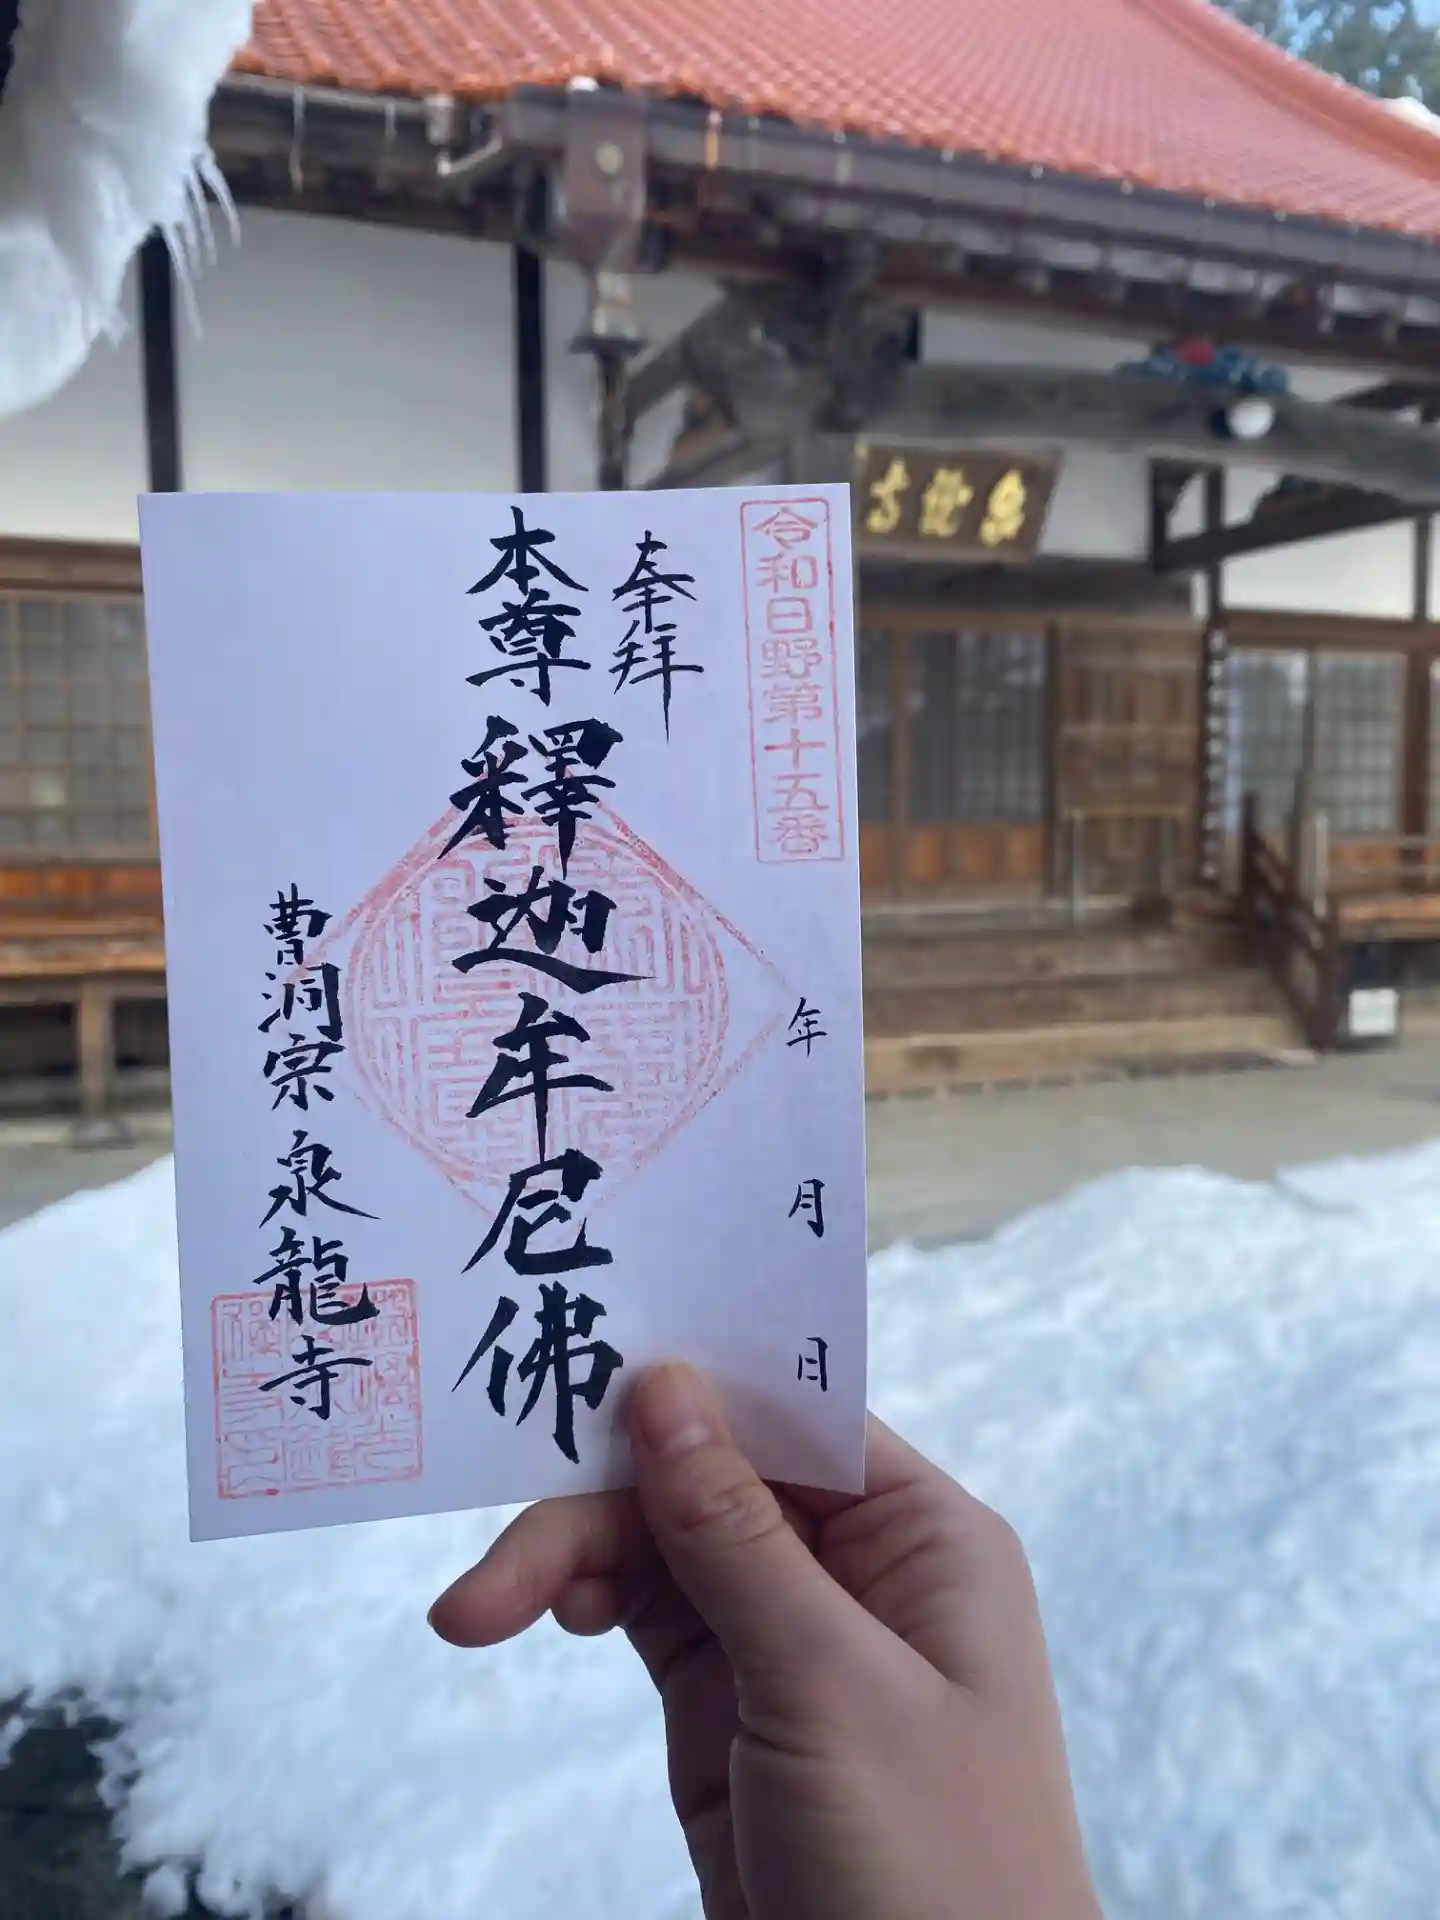 令和日野第十五番
奉拝
年 月 日
本尊 釋迦牟尼佛
曹洞宗 泉龍寺